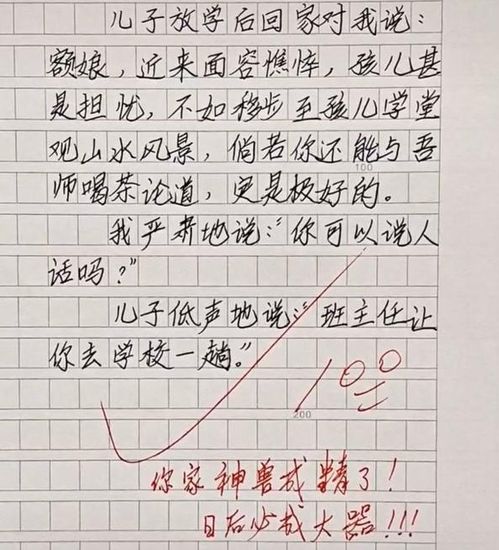 儿子放学后回家对我说：
额娘，近来面容憔悴，孩儿甚
是担忧，不如移步至孩儿学堂
观山水风景，倘若你还能与吾
100
师喝茶论道，更是极好的。
我严肃地说：“你可以说人
话吗？”
儿子低声地说：“班主任让
你去学校一趟。”
100
200
你家神兽成精了！
日后必成大器！！！